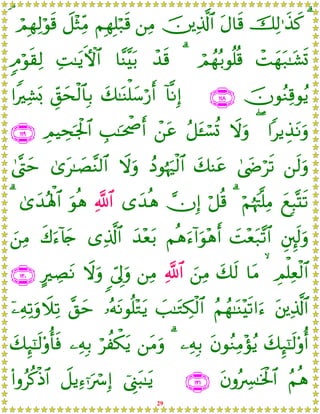 كَذَٰلِكَ قَالَ ٱلَّذِينَ مِن قَبْلِهِم مِّثْلَ قَوْلِهِمْ ۘ
تَشَٰبَهَتْ قُلُوبُهُمْ ۗ قَدْ بَيَّنَّا ٱلْءَايَٰتِ لِقَوْمٍ
يُوقِنُونَ ١١٨ إِنَّآ أَرْسَلْنَٰكَ بِٱلْحَقِّ بَشِيرًا
وَنَذِيرًا ۖ وَلَا تُسْـَٔلُ عَنْ أَصْحَٰبِ ٱلْجَحِيمِ ١١٩
وَلَن تَرْضَىٰ عَنكَ ٱلْيَهُودُ وَلَا ٱلنَّصَٰرَىٰ حَتَّىٰ
تَتَّبِعَ مِلَّتَهُمْ ۗ قُلْ إِنَّ هُدَى ٱللَّهِ هُوَ ٱلْهُدَىٰ ۗ
وَلَئِنِ ٱتَّبَعْتَ أَهْوَآءَهُم بَعْدَ ٱلَّذِى جَآءَكَ مِنَ
ٱلْعِلْمِ ۙ مَا لَكَ مِنَ ٱللَّهِ مِن وَلِىٍّ وَلَا نَصِيرٍ ١٢٠
ٱلَّذِينَ ءَاتَيْنَٰهُمُ ٱلْكِتَٰبَ يَتْلُونَهُۥ حَقَّ تِلَاوَتِهِۦٓ
أُو۟لَٰٓئِكَ يُؤْمِنُونَ بِهِۦ ۗ وَمَن يَكْفُرْ بِهِۦ فَأُو۟لَٰٓئِكَ
هُمُ ٱلْخَٰسِرُونَ ١٢١ يَٰبَنِىٓ إِسْرَٰٓءِيلَ ٱذْكُرُوا۟
29